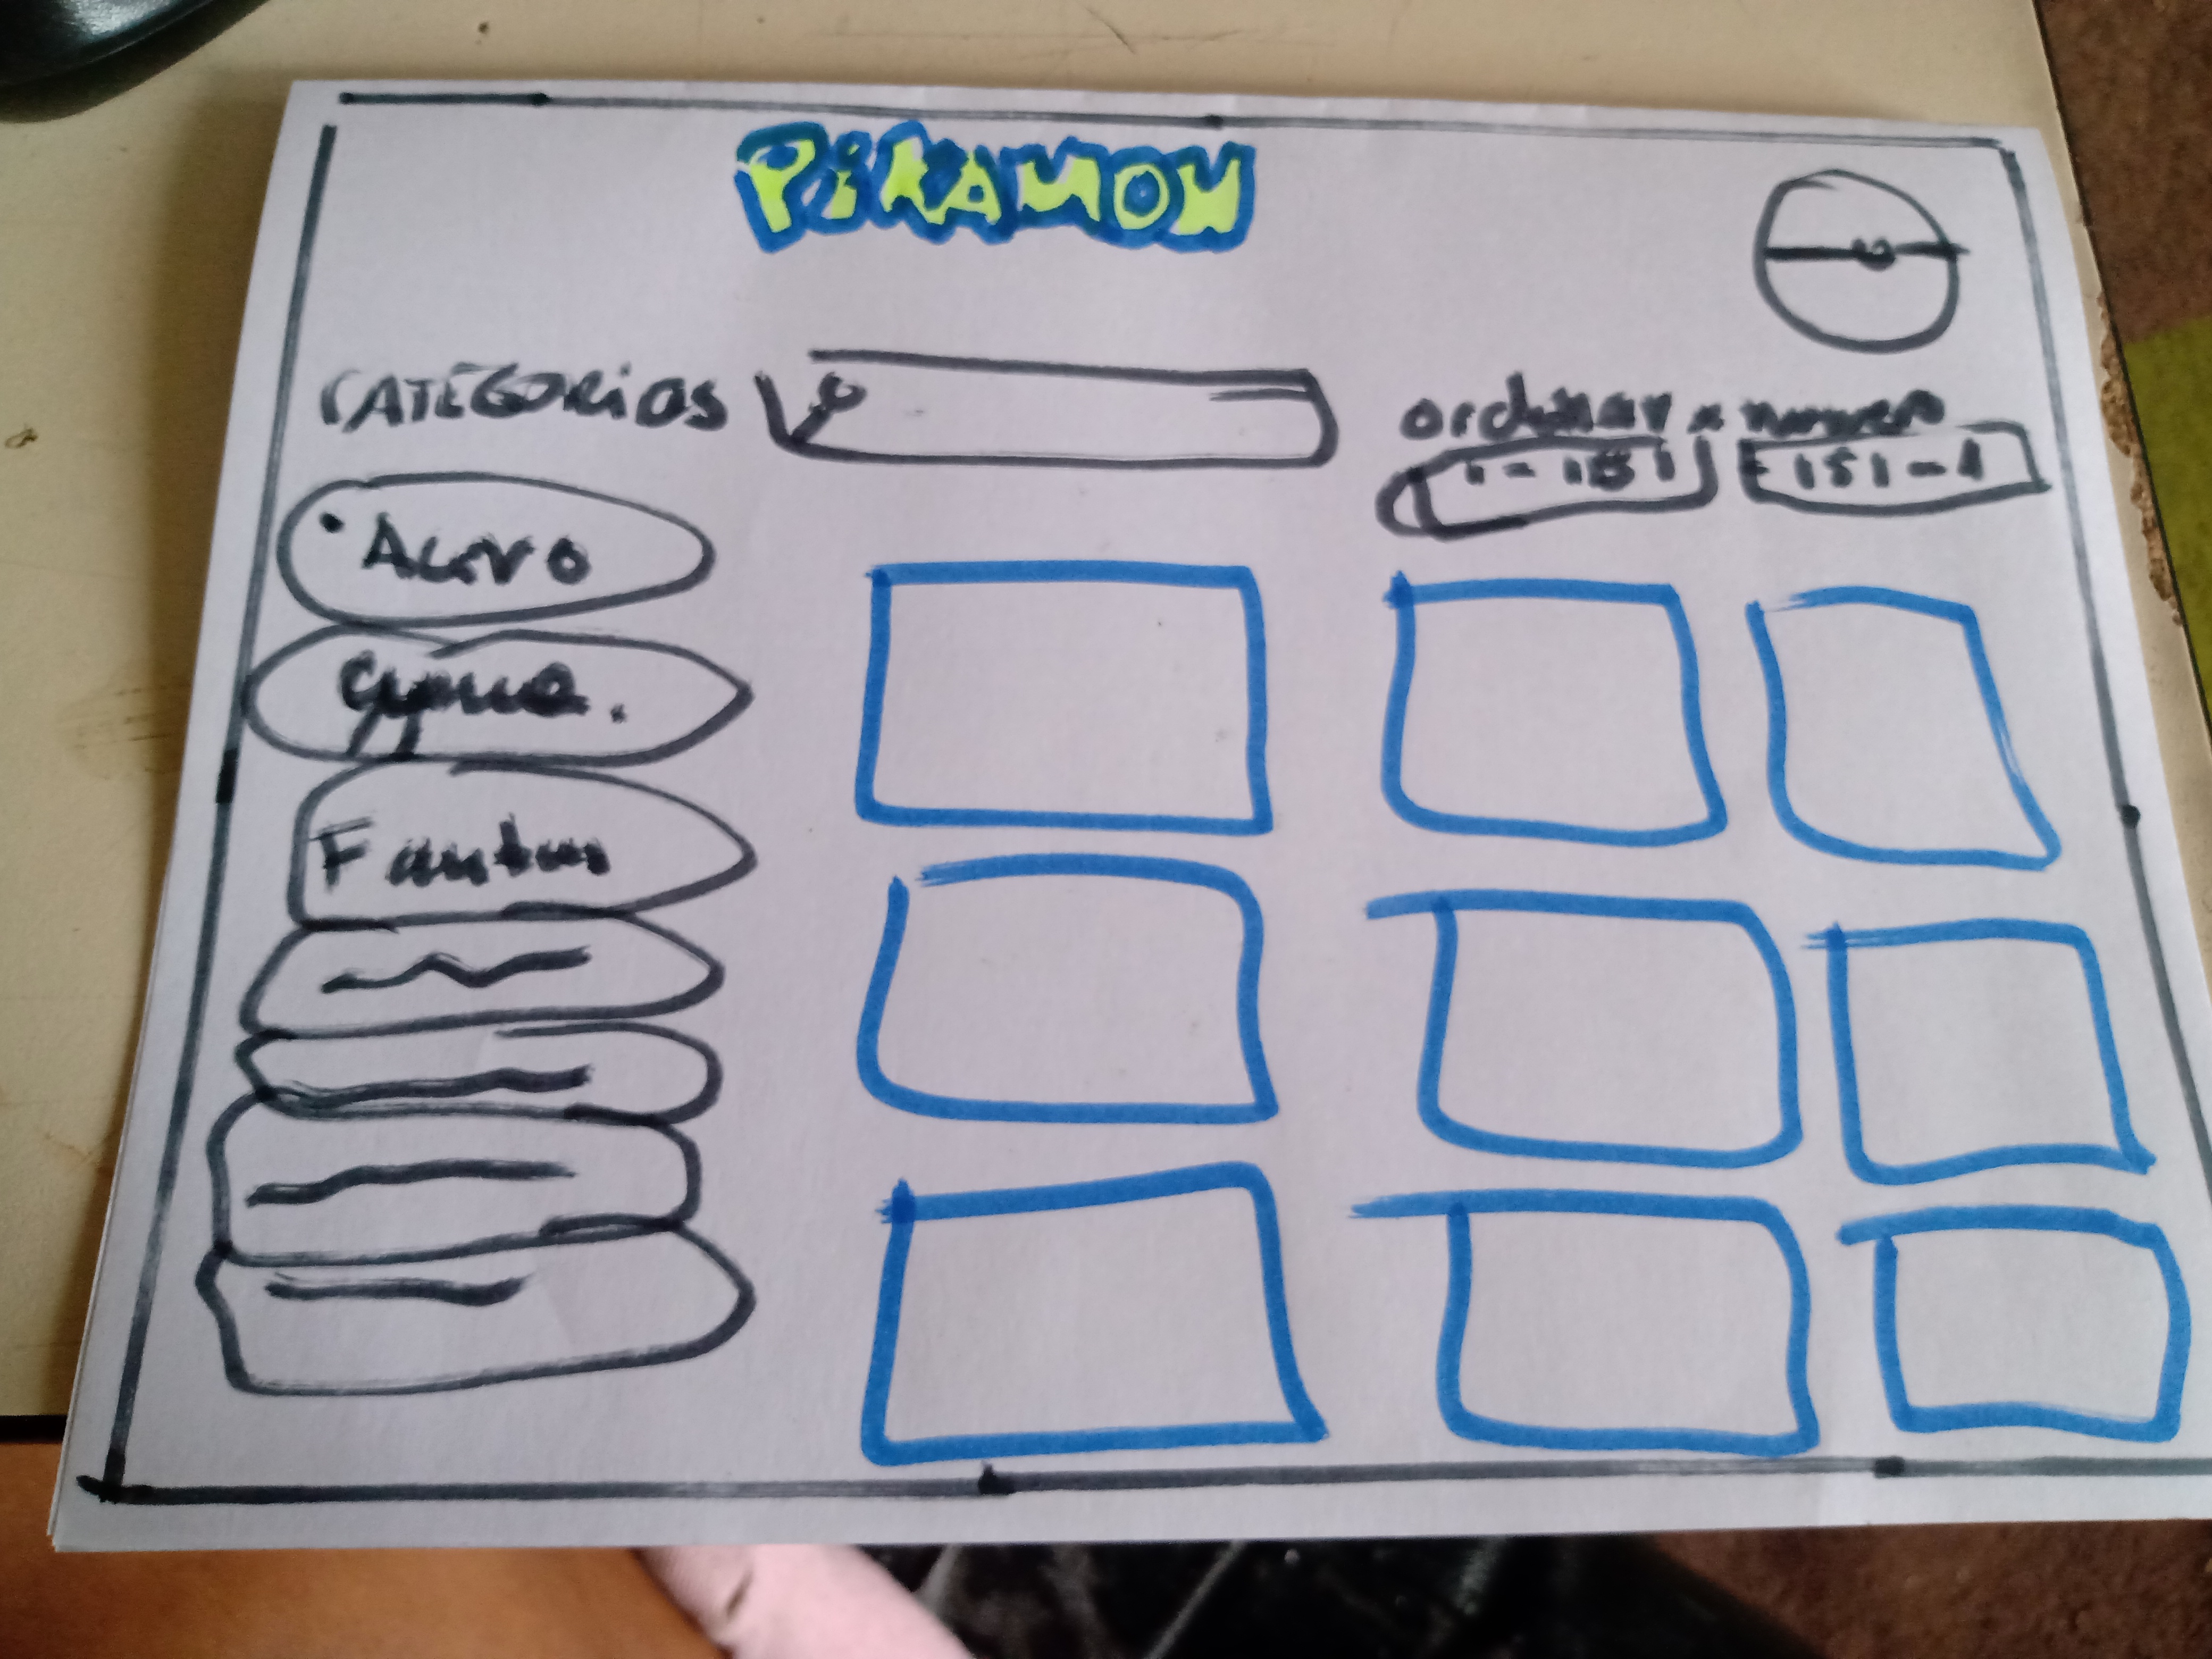 PiKAMON
CATEGORiAS
ordenar x numero
1 - 151
151 - 1
Acero
Agua.
Fantas